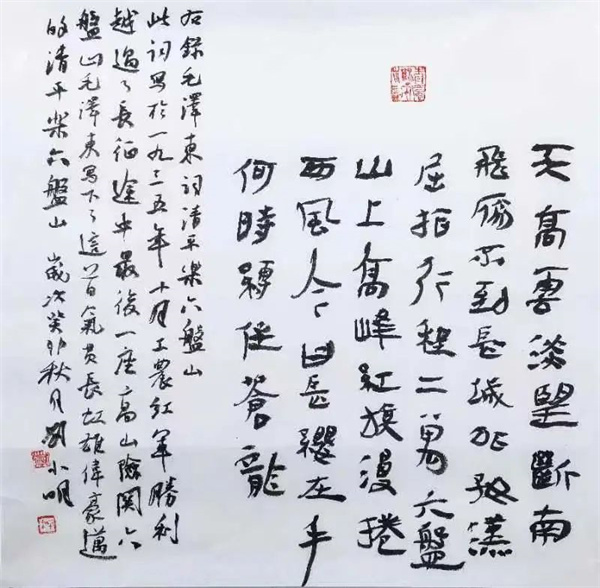 天高雲淡望斷南
飛雁不到長城非好漢
屈指行程二萬六盤
山上高峰紅旗漫捲
西風今日長纓在手
何時縛住蒼龍
右錄毛澤東詞清平樂六盤山
此詞寫於一九三五年十月工農紅軍勝利
越過了長征途中最後一座高山險關六
盤山毛澤東寫下了這首氣貫長虹雄偉豪邁
的清平樂六盤山 歲次癸卯秋月劉小明